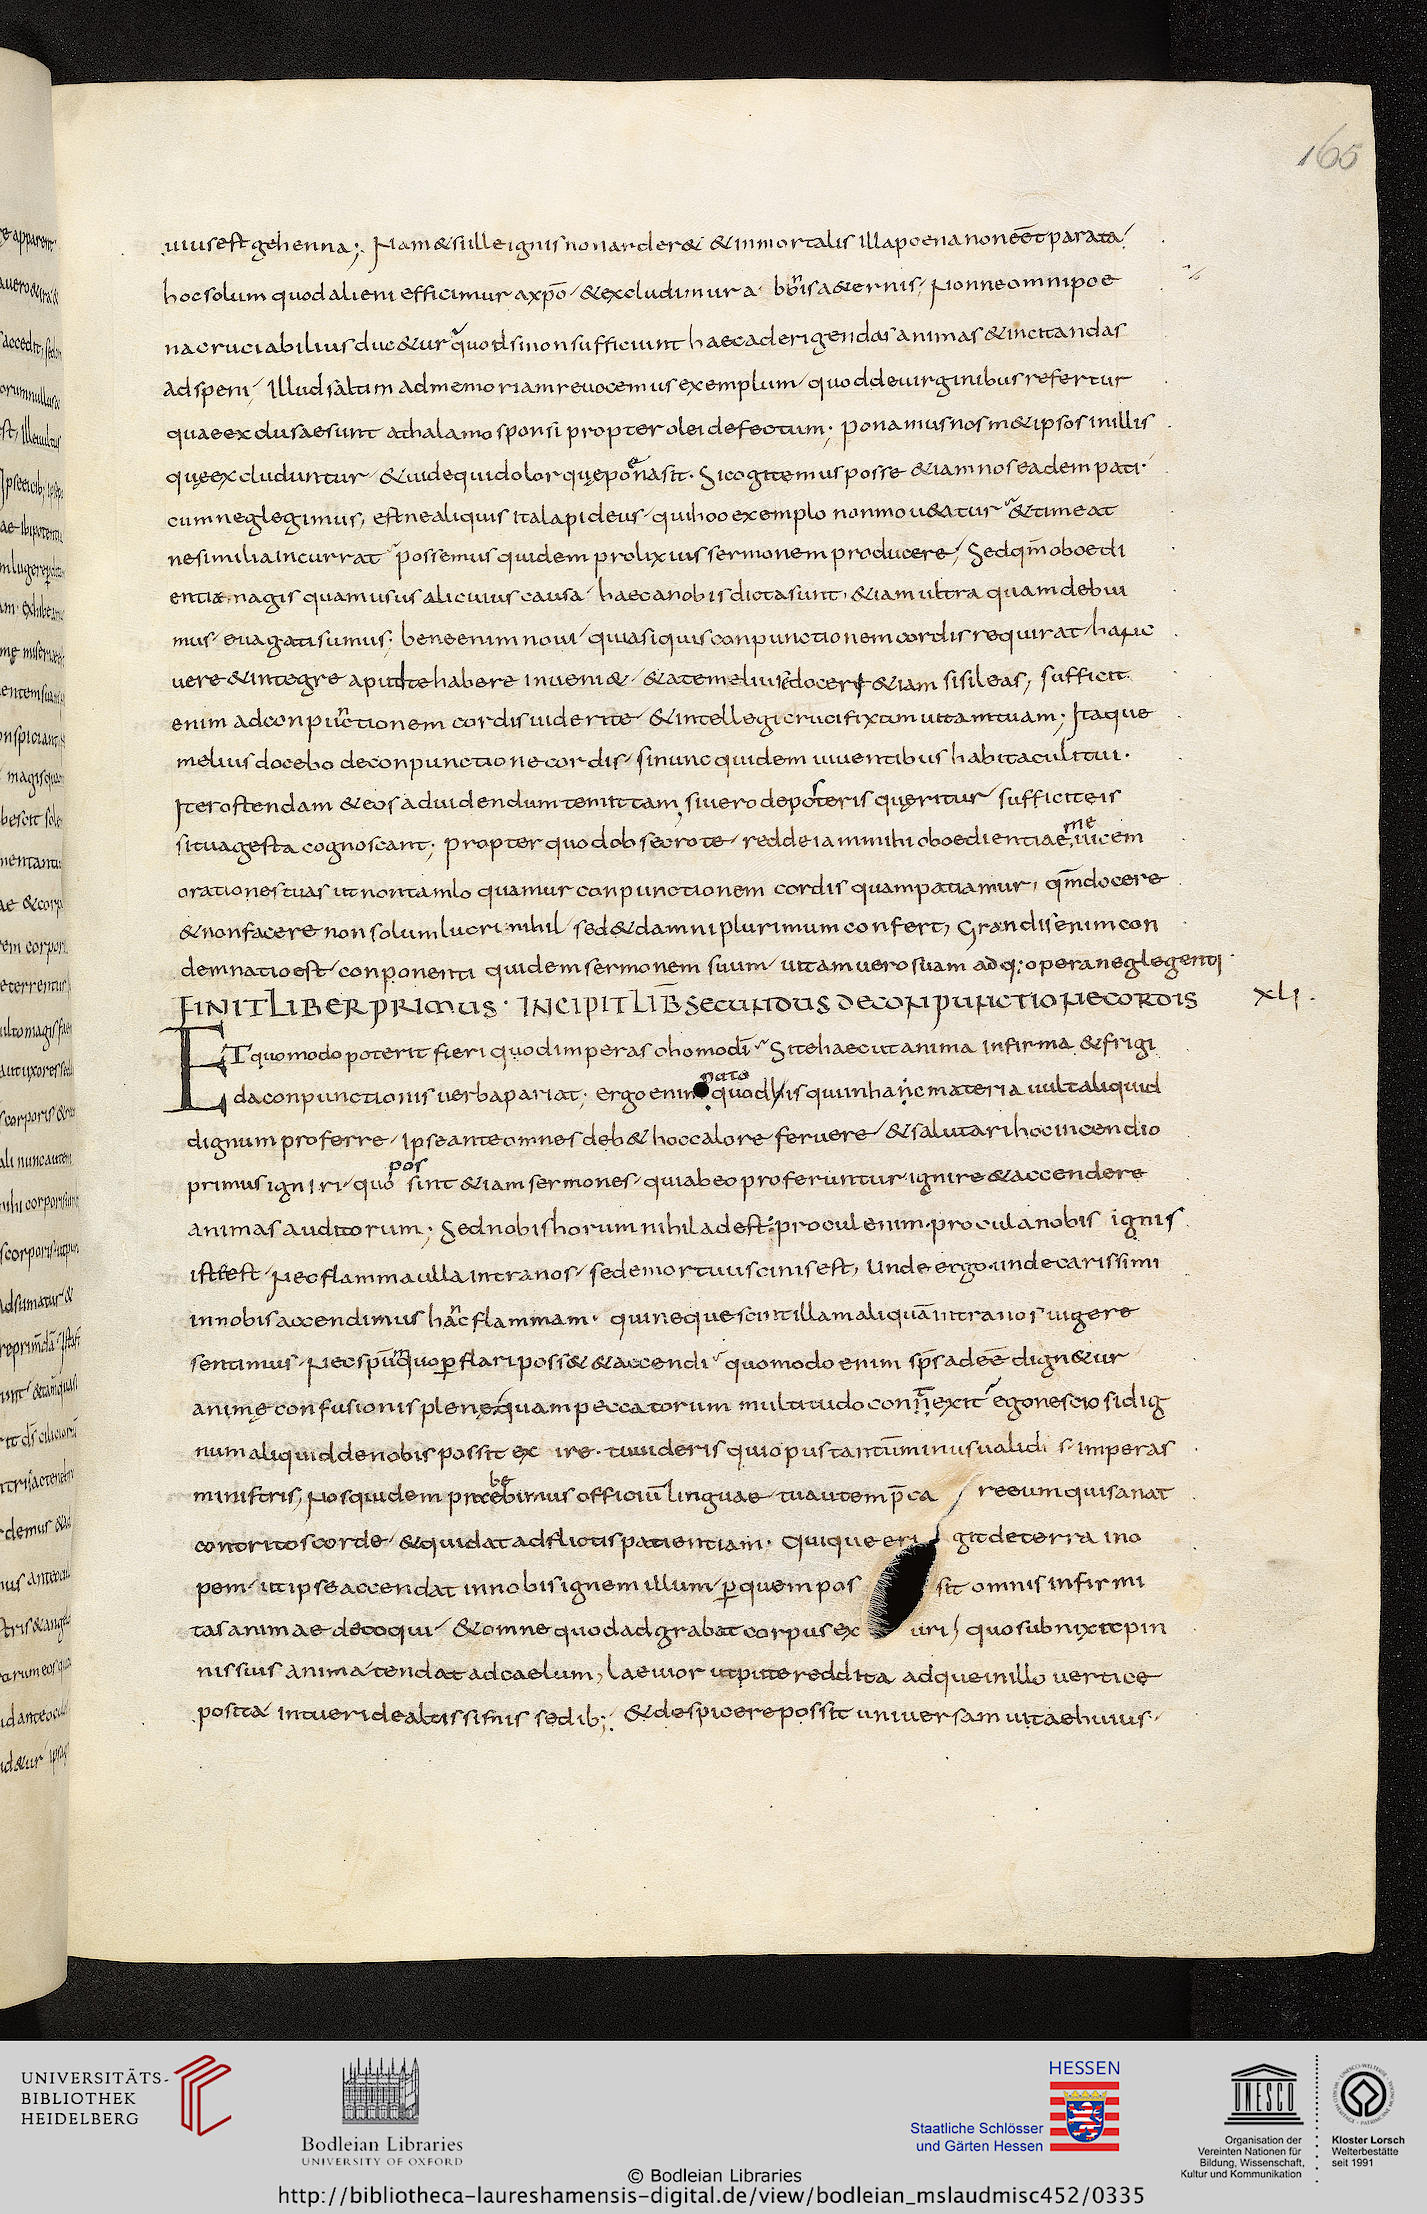 165
uius est gehenna; Nam & si ille ignis non arder& & inmortalis illa poena non eēt parata
hoc solum quod alieni efficimur a xp̄o & excludimur a bbis a&ernis, Nonne omni poe
na cruciabilius duc&ur quod si non sufficiunt haec ad erigendas animas & incitandas
ad spem, Illud saltim ad memoriam revocemus exemplum quod de uirginibus refertur
quae exclusae sunt a thalamo sponsi propter olei defectum; ponamus nosm&ipsos in illis
quę excluduntur & uide qui dolor quę poena sit. Si cogitemus posse &iam nos eadem pati
cum neglegimus, estne aliquis ita lapideus qui hoc exemplo non mou&atur & timeat
ne similia incurrat possemus quidem prolixius sermonem producere, Sed qm̄ oboedi
entiae magis quam usus alicuius causa haec a nobis dicta sunt, &iam ultra quam debui
mus euagati sumus; bene enim noui quia si quis conpunctionem cordis requirat hanc
uere & integre apud te habere inueni& & a te melius doceri &iam si sileas, sufficit
enim ad conpunctionem cordis uidere te & intellegi crucifixam uitam tuam; Itaque
melius docebo de conpunctione cordis si nunc quidem uiuentibus habitaculi tui
Iter ostendam & eos ad uidendum te mittam, si uero de posteris quęritur sufficit eis
si tua gesta cognoscant; propter quod obsecro te redde iam mihi oboedientiae me uicem
orationes tuas ut non tam loquamur conpunctionem cordis quam patiamur, qm̄ docere
& non facere non solum lucri nihil sed & damni plurimum confert, Grandis enim con
demnatio est conponenti quidem sermonem suum uitam uero suam adq; opera neglegenti
FINIT LIBER PRIMUS · INCIPIT LIB̄ SECUNDUS DE CONPUNCTIONE CORDIS XLI.
ET quomodo poterit fieri quod imperas o homo dī Si te haec ut anima infirma & frigi
da conpunctionis uerba pariat; ergo enim quod his qui in hanc materia uult aliquid
dignum proferre ipse ante omnes deb& hoc calore feruere & salutari hoc incendio
primus igniri quo possint &iam sermones qui ab eo proferuntur ignire & accendere
animas auditorum; Sed nobis horum nihil adest procul enim procul a nobis ignis
iste est Nec flamma ulla intra nos sed emortuus cinis est, Unde ergo unde carissimi
in nobis accendimus hanc flammam quineque scintillam aliquā intra nos uigere
sentimus Nec spm̄ quo p̲flari poss& & accendi quomodo enim sp̄s adeē dign&ur
animę confusionis plenę quam peccatorum multitudo connexit ego nescio si dig
num aliquid de nobis possit ex ire tu uideris qui opus tantū minus ualidi s imperas
ministris, Nos quidem prębebimus officiū linguae tu autem p̄ca re eum qui sanat
contritos corde & qui dat adflictis patientiam Quique eri git de terra ino
pem ut ipse accendat in nobis ignem illum p̲ quem pos sit omnis infirmi
tas animae decoqui & omne quod adgrabat corpus ex uri, quo subnixit pin
nis suis anima tendat ad caelum, laeuior utpute reddita adque in illo uertice
posita intueri de altissimis sedib; & despicere possit uniuersam uitae huius
UNIVERSITÄTS-
BIBLIOTHEK
HEIDELBERG
Bodleian Libraries
UNIVERSITY OF OXFORD
HESSEN
Staatliche Schlösser
und Gärten Hessen
UNESCO
Organisation der
Vereinten Nationen für
Bildung, Wissenschaft,
Kultur und Kommunikation
Kloster Lorsch
Welterbestätte
seit 1991
© Bodleian Libraries
http://bibliotheca-laureshamensis-digital.de/view/bodleian_mslaudmisc452/0335